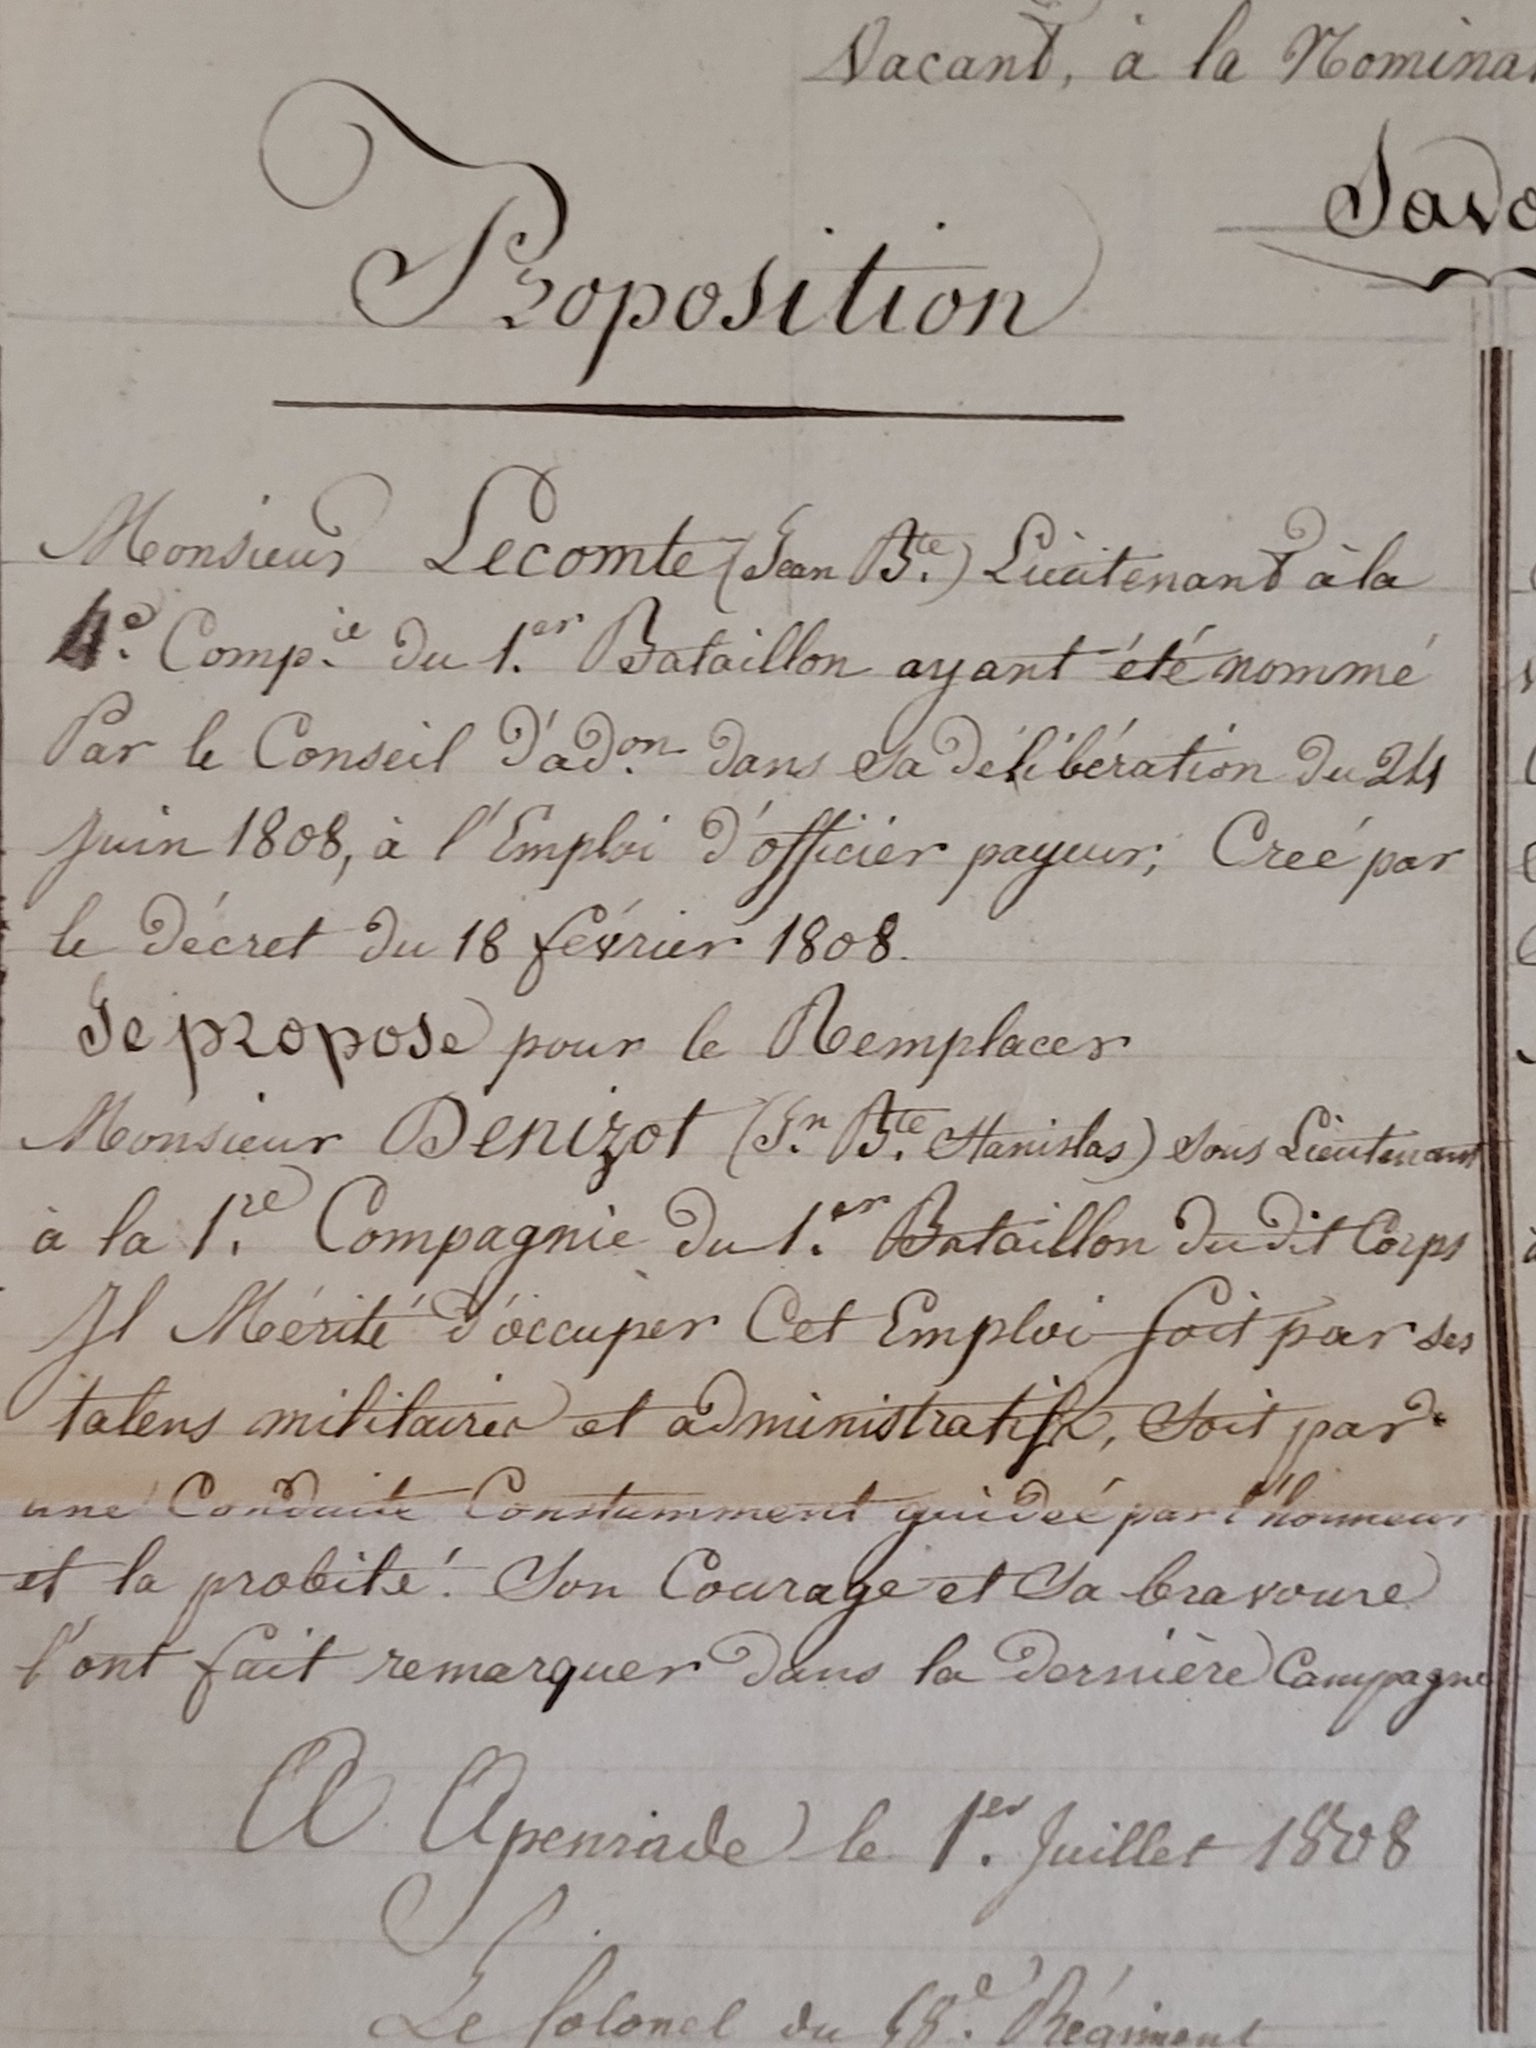 Vacant, à la Nomina
Savo
Proposition
Monsieur Lecomte (Jean Bte.) Lieutenant à la
4e. Comp.ie du 1.er Bataillon ayant été nommé
Par le Conseil d'adon. dans sa délibération du 24
Juin 1808, à l'Emploi d'officier payeur; Creé par
le décret du 18 février 1808.
Je propose pour le Remplacer
Monsieur Denizot (Jn. Bte. Stanislas) Sous Lieutenant
à la 1.re Compagnie du 1.er Bataillon dudit Corps
Il Mérité d'occuper Cet Emploi soit par ses
talens militaires et administratifs, Soit par
une Conduite Constamment guideé par l'honneur
et la probité. Son Courage et Sa bravoure
l'ont fait remarquer dans la dernière Campagne
A Apenrade le 1er. Juillet 1808
Le Colonel du 58e. Régiment